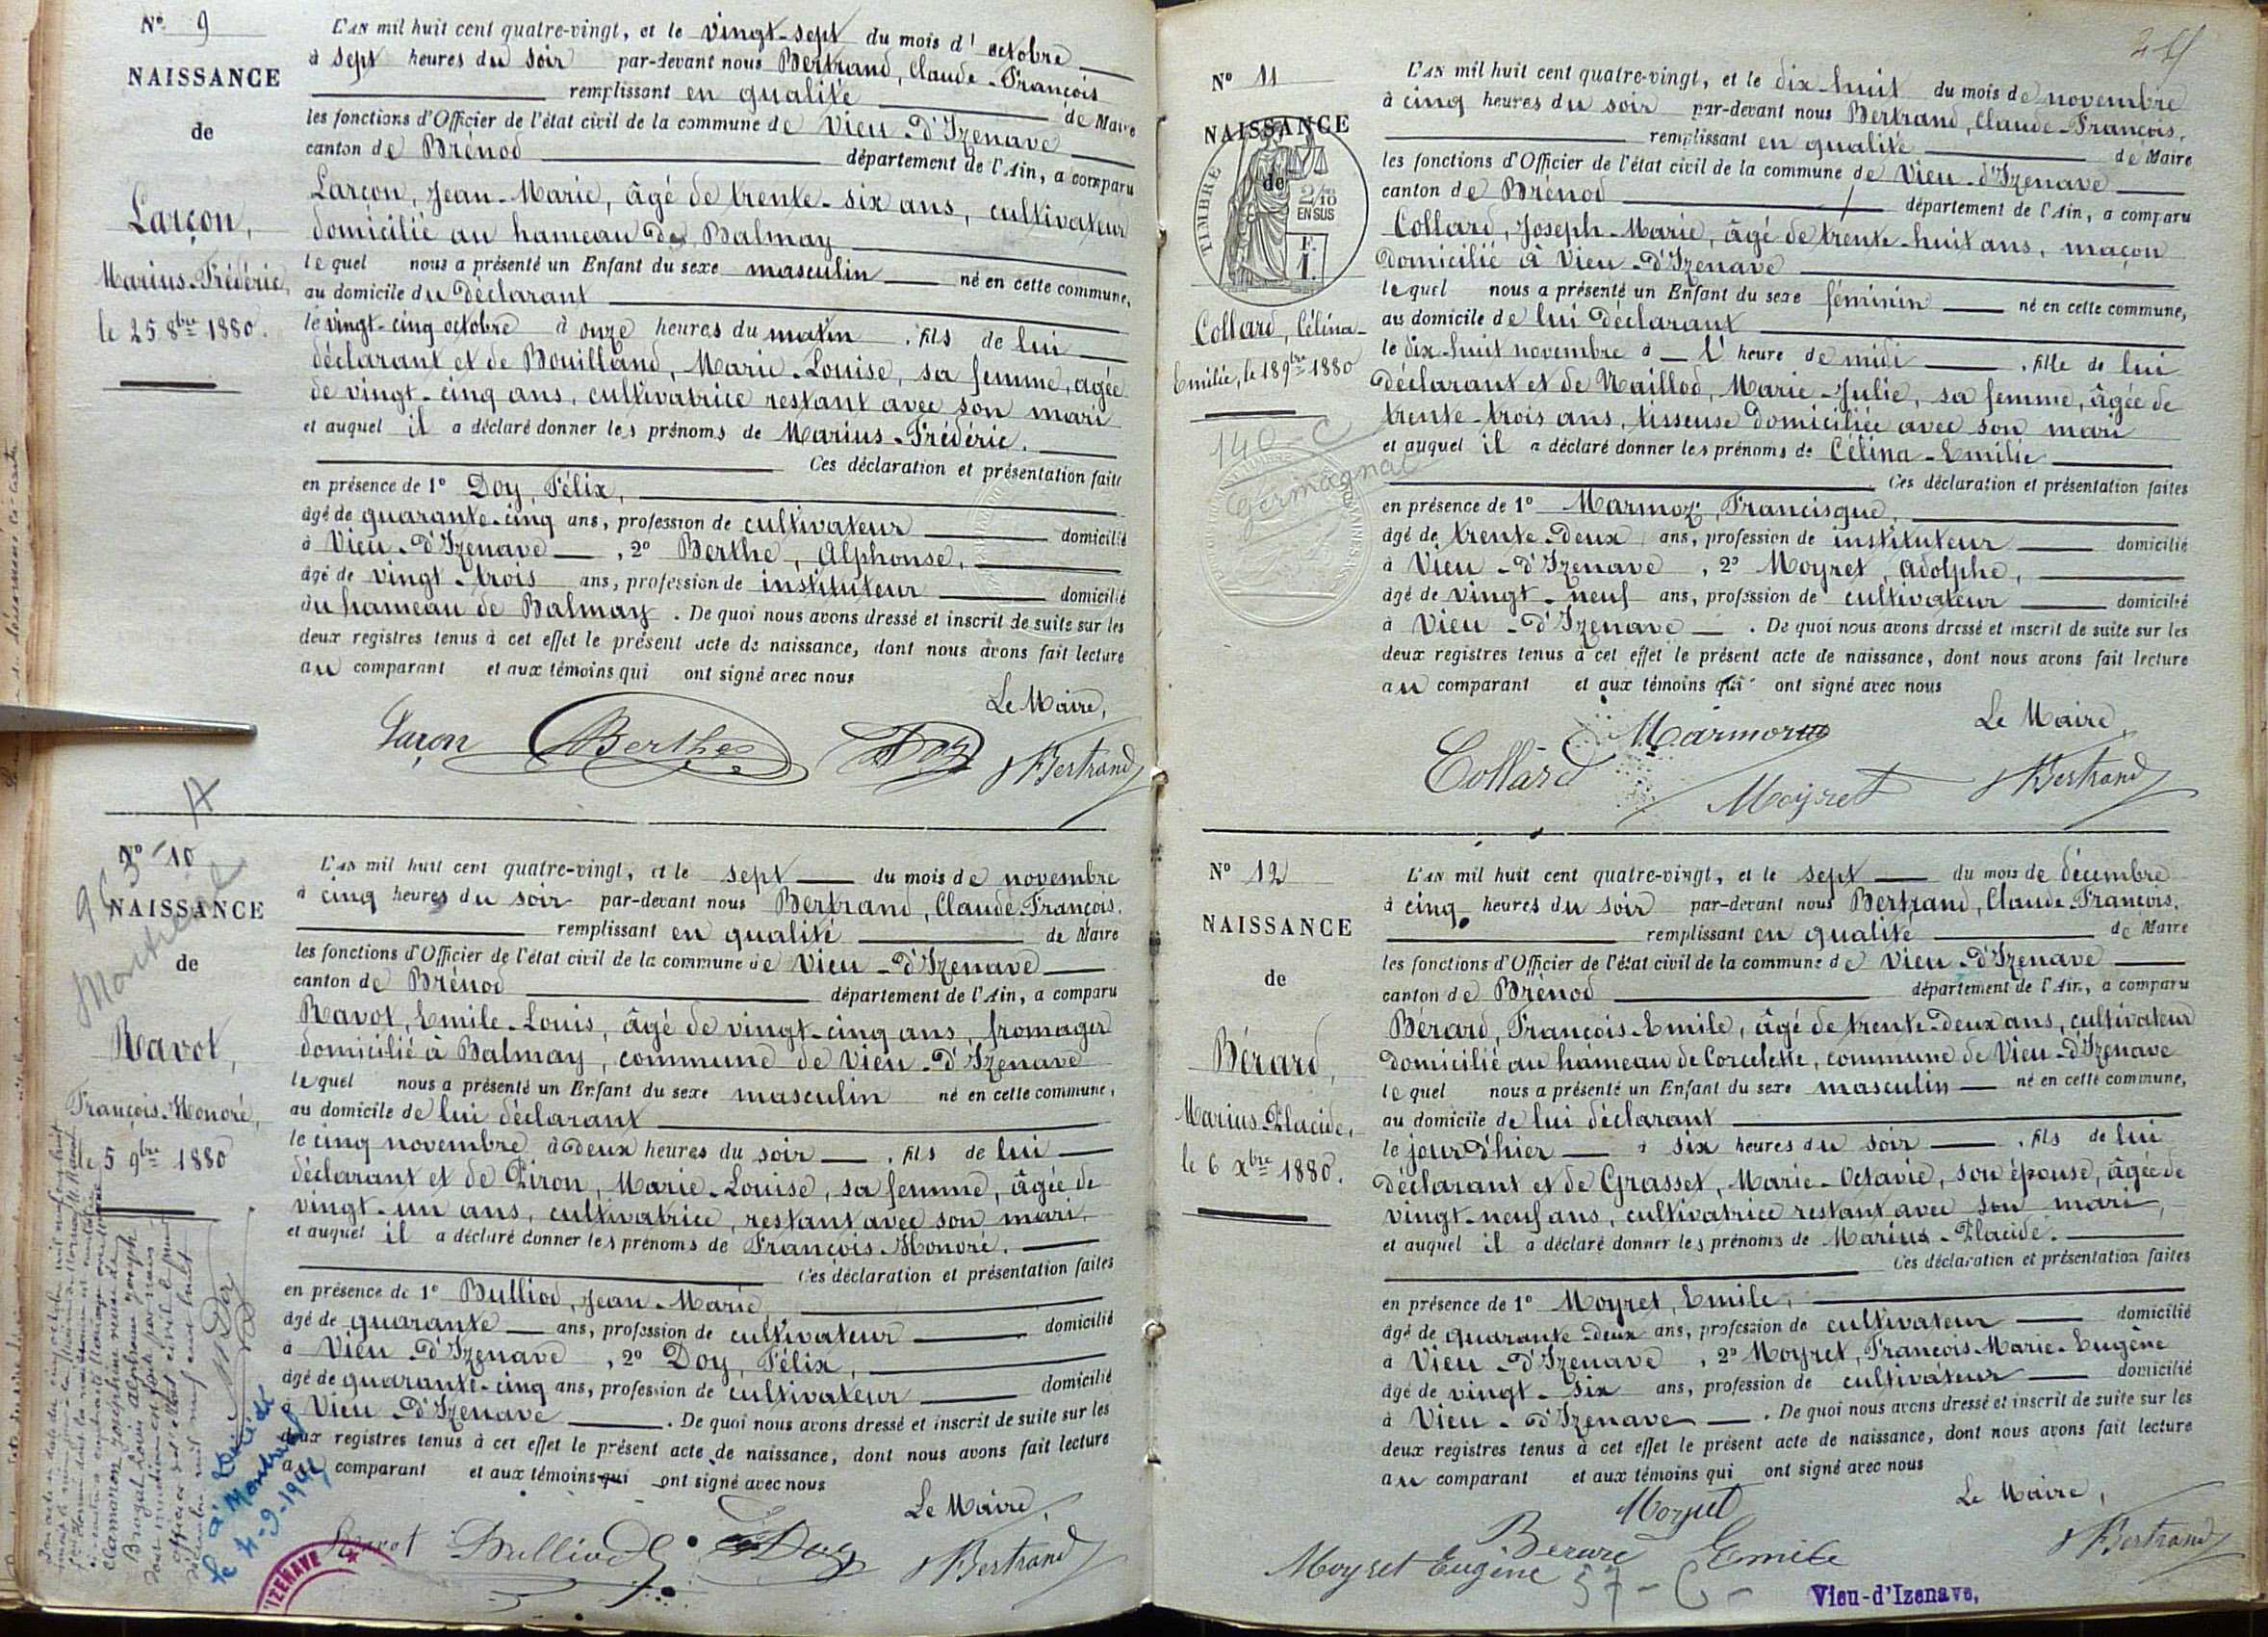 N° 9
NAISSANCE
de
Larçon,
Marius-Frédéric,
le 25 8bre 1880.
L'AN mil huit cent quatre-vingt, et le vingt-sept du mois d'octobre
à sept heures du soir par-devant nous Bertrand, Claude-François
remplissant en qualité de Maire
les fonctions d'Officier de l'état civil de la commune de Vieu-d'Izenave
canton de Brénod département de l'Ain, a comparu
Larçon, Jean-Marie, âgé de trente-six ans, cultivateur
domicilié au hameau de Balmay
lequel nous a présenté un Enfant du sexe masculin né en cette commune,
au domicile du déclarant
le vingt-cinq octobre à onze heures du matin, fils de lui
déclarant et de Bouilland, Marie-Louise, sa femme, agée
de vingt-cinq ans, cultivatrice restant avec son mari
et auquel il a déclaré donner les prénoms de Marius-Frédéric.
Ces déclaration et présentation faites
en présence de 1° Doy, Félix,
âgé de quarante-cinq ans, profession de cultivateur domicilié
à Vieu-d'Izenave, 2° Berthe, Alphonse,
âgé de vingt-trois ans, profession de instituteur domicilié
au hameau de Balmay. De quoi nous avons dressé et inscrit de suite sur les
deux registres tenus à cet effet le présent acte de naissance, dont nous avons fait lecture
au comparant et aux témoins qui ont signé avec nous
Le Maire,
Larçon Berthe Doy Bertrand
N° 10
NAISSANCE
de
Montréal
Ravot,
François-Honoré,
le 5 9bre 1880
L'AN mil huit cent quatre-vingt, et le sept du mois de novembre
à cinq heures du soir par-devant nous Bertrand, Claude-François,
remplissant en qualité de Maire
les fonctions d'Officier de l'état civil de la commune de Vieu-d'Izenave
canton de Brénod département de l'Ain, a comparu
Ravot, Emile-Louis, âgé de vingt-cinq ans, fromager
domicilié à Balmay, commune de Vieu-d'Izenave
lequel nous a présenté un Enfant du sexe masculin né en cette commune,
au domicile de lui déclarant
le cinq novembre à deux heures du soir, fils de lui
déclarant et de Piron, Marie-Louise, sa femme, âgée de
vingt-un ans, cultivatrice, restant avec son mari,
et auquel il a déclaré donner les prénoms de François-Honoré.
Ces déclaration et présentation faites
en présence de 1° Bulliod, Jean-Marie,
âgé de quarante ans, profession de cultivateur domicilié
à Vieu-d'Izenave, 2° Doy, Félix,
âgé de quarante-cinq ans, profession de cultivateur domicilié
à Vieu-d'Izenave. De quoi nous avons dressé et inscrit de suite sur les
deux registres tenus à cet effet le présent acte de naissance, dont nous avons fait lecture
au comparant et aux témoins qui ont signé avec nous
Le Maire,
Ravot Bulliod Doy Bertrand
IZENAVE
N° 11
NAISSANCE
de
TIMBRE
2/10
EN SUS
Collard, Célina-
Emilie, le 18 9bre 1880
140-C
Germagnat
L'AN mil huit cent quatre-vingt, et le dix-huit du mois de novembre
à cinq heures du soir par-devant nous Bertrand, Claude-François,
remplissant en qualité de Maire
les fonctions d'Officier de l'état civil de la commune de Vieu-d'Izenave
canton de Brénod département de l'Ain, a comparu
Collard, Joseph-Marie, âgé de trente-huit ans, maçon
domicilié à Vieu-d'Izenave
lequel nous a présenté un Enfant du sexe féminin né en cette commune,
au domicile de lui déclarant
le dix-huit novembre à l'heure de midi, fille de lui
déclarant et de Maillod, Marie-Julie, sa femme, âgée de
trente-trois ans, tisseuse domiciliée avec son mari
et auquel il a déclaré donner les prénoms de Célina-Emilie
Ces déclaration et présentation faites
en présence de 1° Marmoz, Francisque,
âgé de trente-deux ans, profession de instituteur domicilié
à Vieu-d'Izenave, 2° Moyret, Adolphe,
âgé de vingt-neuf ans, profession de cultivateur domicilié
à Vieu-d'Izenave. De quoi nous avons dressé et inscrit de suite sur les
deux registres tenus à cet effet le présent acte de naissance, dont nous avons fait lecture
au comparant et aux témoins qui ont signé avec nous
Le Maire
Collard Marmoz Moyret Bertrand
N° 12
NAISSANCE
de
Bérard,
Marius-Placide,
le 6 xbre 1880.
L'AN mil huit cent quatre-vingt, et le sept du mois de décembre
à cinq heures du soir par-devant nous Bertrand, Claude-François,
remplissant en qualité de Maire
les fonctions d'Officier de l'état civil de la commune de Vieu-d'Izenave
canton de Brénod département de l'Ain, a comparu
Bérard, François-Emile, âgé de trente-deux ans, cultivateur
domicilié au hameau de Corcelette, commune de Vieu-d'Izenave
lequel nous a présenté un Enfant du sexe masculin né en cette commune,
au domicile de lui déclarant
le jour d'hier à six heures du soir, fils de lui
déclarant et de Grasset, Marie-Octavie, son épouse, âgée de
vingt-neuf ans, cultivatrice restant avec son mari,
et auquel il a déclaré donner les prénoms de Marius-Placide.
Ces déclaration et présentation faites
en présence de 1° Moyret, Emile,
âgé de quarante-deux ans, profession de cultivateur domicilié
à Vieu-d'Izenave, 2° Moyret, François-Marie-Eugène
âgé de vingt-six ans, profession de cultivateur domicilié
à Vieu-d'Izenave. De quoi nous avons dressé et inscrit de suite sur les
deux registres tenus à cet effet le présent acte de naissance, dont nous avons fait lecture
au comparant et aux témoins qui ont signé avec nous
Le Maire,
Moyret Emile
Bérard
Moyret Eugène
Bertrand
57-C-
Vieu-d'Izenave,